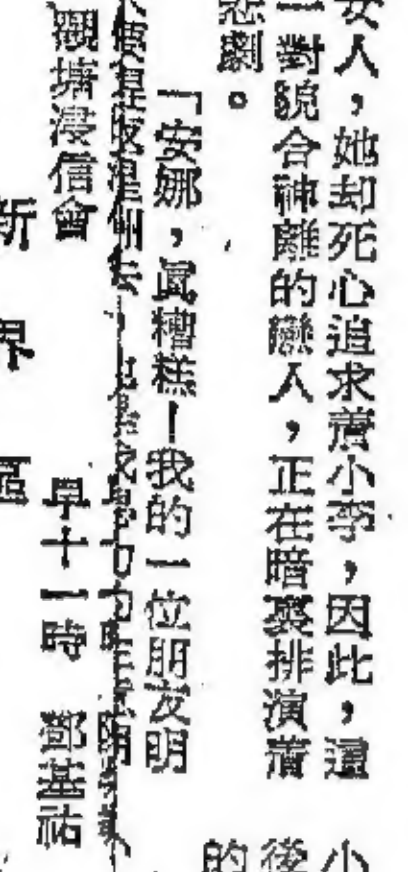 女人，她却死心追求蕭小李，因此，這
一對貌合神離的戀人，正在暗裏排演蕭
悲劇。
「安娜，眞糟糕！我的一位朋友明
觀塘浸信會　早十一時　鄧基祐
新界區
小
後
的